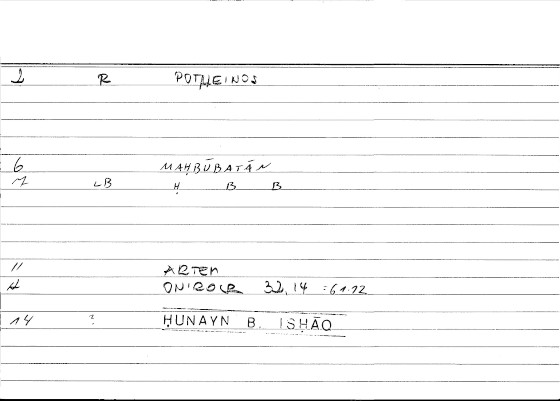 1 R POTHEINOS
6 MAḤBŪBATĀN
M LB Ḥ B B
11 ARTEM
A ONIROCR 32,14 :61.12
14 ? ḤUNAYN B. ISḤĀQ